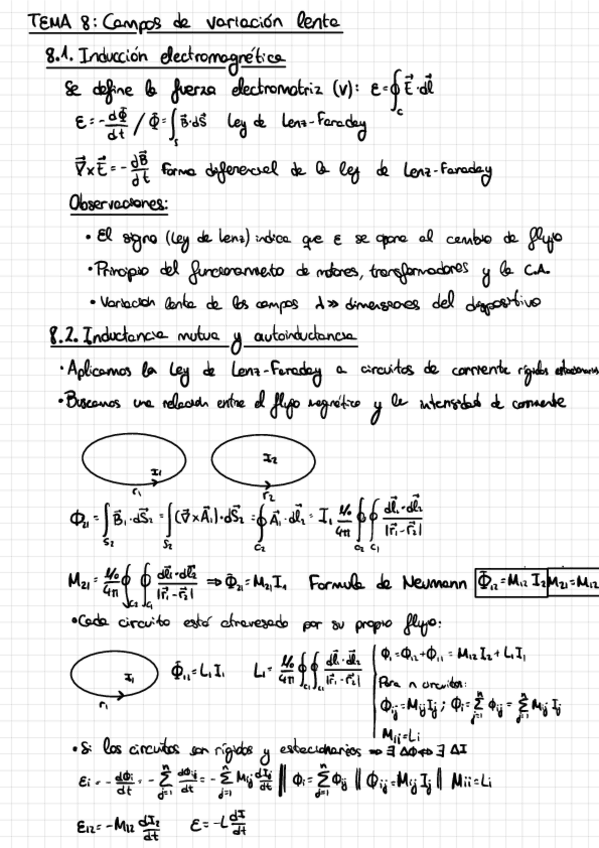 TEMA 8: Campos de variación lenta
8.1. Inducción electromagnética
Se define la fuerza electromotriz (V): ε=∮_C E⃗·dl⃗
ε=-dΦ/dt / Φ=∫_S B⃗·dS⃗ Ley de Lenz-Faraday
∇⃗×E⃗=-dB⃗/dt Forma diferencial de la ley de Lenz-Faraday
Observaciones:
• El signo (Ley de Lenz) indica que ε se opone al cambio de flujo
• Principio del funcionamiento de motores, transformadores y la C.A.
• Variación lenta de los campos λ>> dimensiones del dispositivo
8.2. Inductancia mutua y autoinductancia
• Aplicamos la Ley de Lenz-Faraday a circuitos de corriente rígidos estacionarios
• Buscamos una relación entre el flujo magnético y la intensidad de corriente
I₁ I₂
r₁ r₂
Φ₂₁=∫_S₂ B⃗₁·dS⃗₂=∫_S₂ (∇⃗×A⃗₁)·dS⃗₂=∮_C₂ A⃗₁·dl⃗₂=I₁ μ₀/4π ∮_C₂ ∮_C₁ dl⃗₁·dl⃗₂/|r⃗₁-r⃗₂|
M₂₁=μ₀/4π ∮_C₂ ∮_C₁ dl⃗₁·dl⃗₂/|r⃗₁-r⃗₂| ⇒Φ₂₁=M₂₁I₁ Formula de Neumann Φ₁₂=M₁₂I₂ M₂₁=M₁₂
• Cada circuito está atravesado por su propio flujo:
I₁ r₁ Φ₁₁=L₁I₁ L₁=μ₀/4π ∮_C₁ ∮_C₁ dl⃗₁·dl⃗₁/|r⃗₁-r⃗₁|
Φ₁=Φ₁₂+Φ₁₁=M₁₂I₂+L₁I₁
Para n circuitos:
Φij=MijIj; Φi=∑ⁿj=1 Φij=∑ⁿj=1 Mij Ij
Mii=Li
• Si los circuitos son rígidos y estacionarios ⇒ ∃ ΔΦ⇔∃ ΔI
εi=-dΦi/dt=-∑ⁿj=1 dΦij/dt=-∑ⁿj=1 Mij dIj/dt ‖ Φi=∑ⁿj=1 Φij ‖ Φij=MijIj ‖ Mii=Li
ε₁₂=-M₁₂ dI₂/dt ε=-L dI/dt